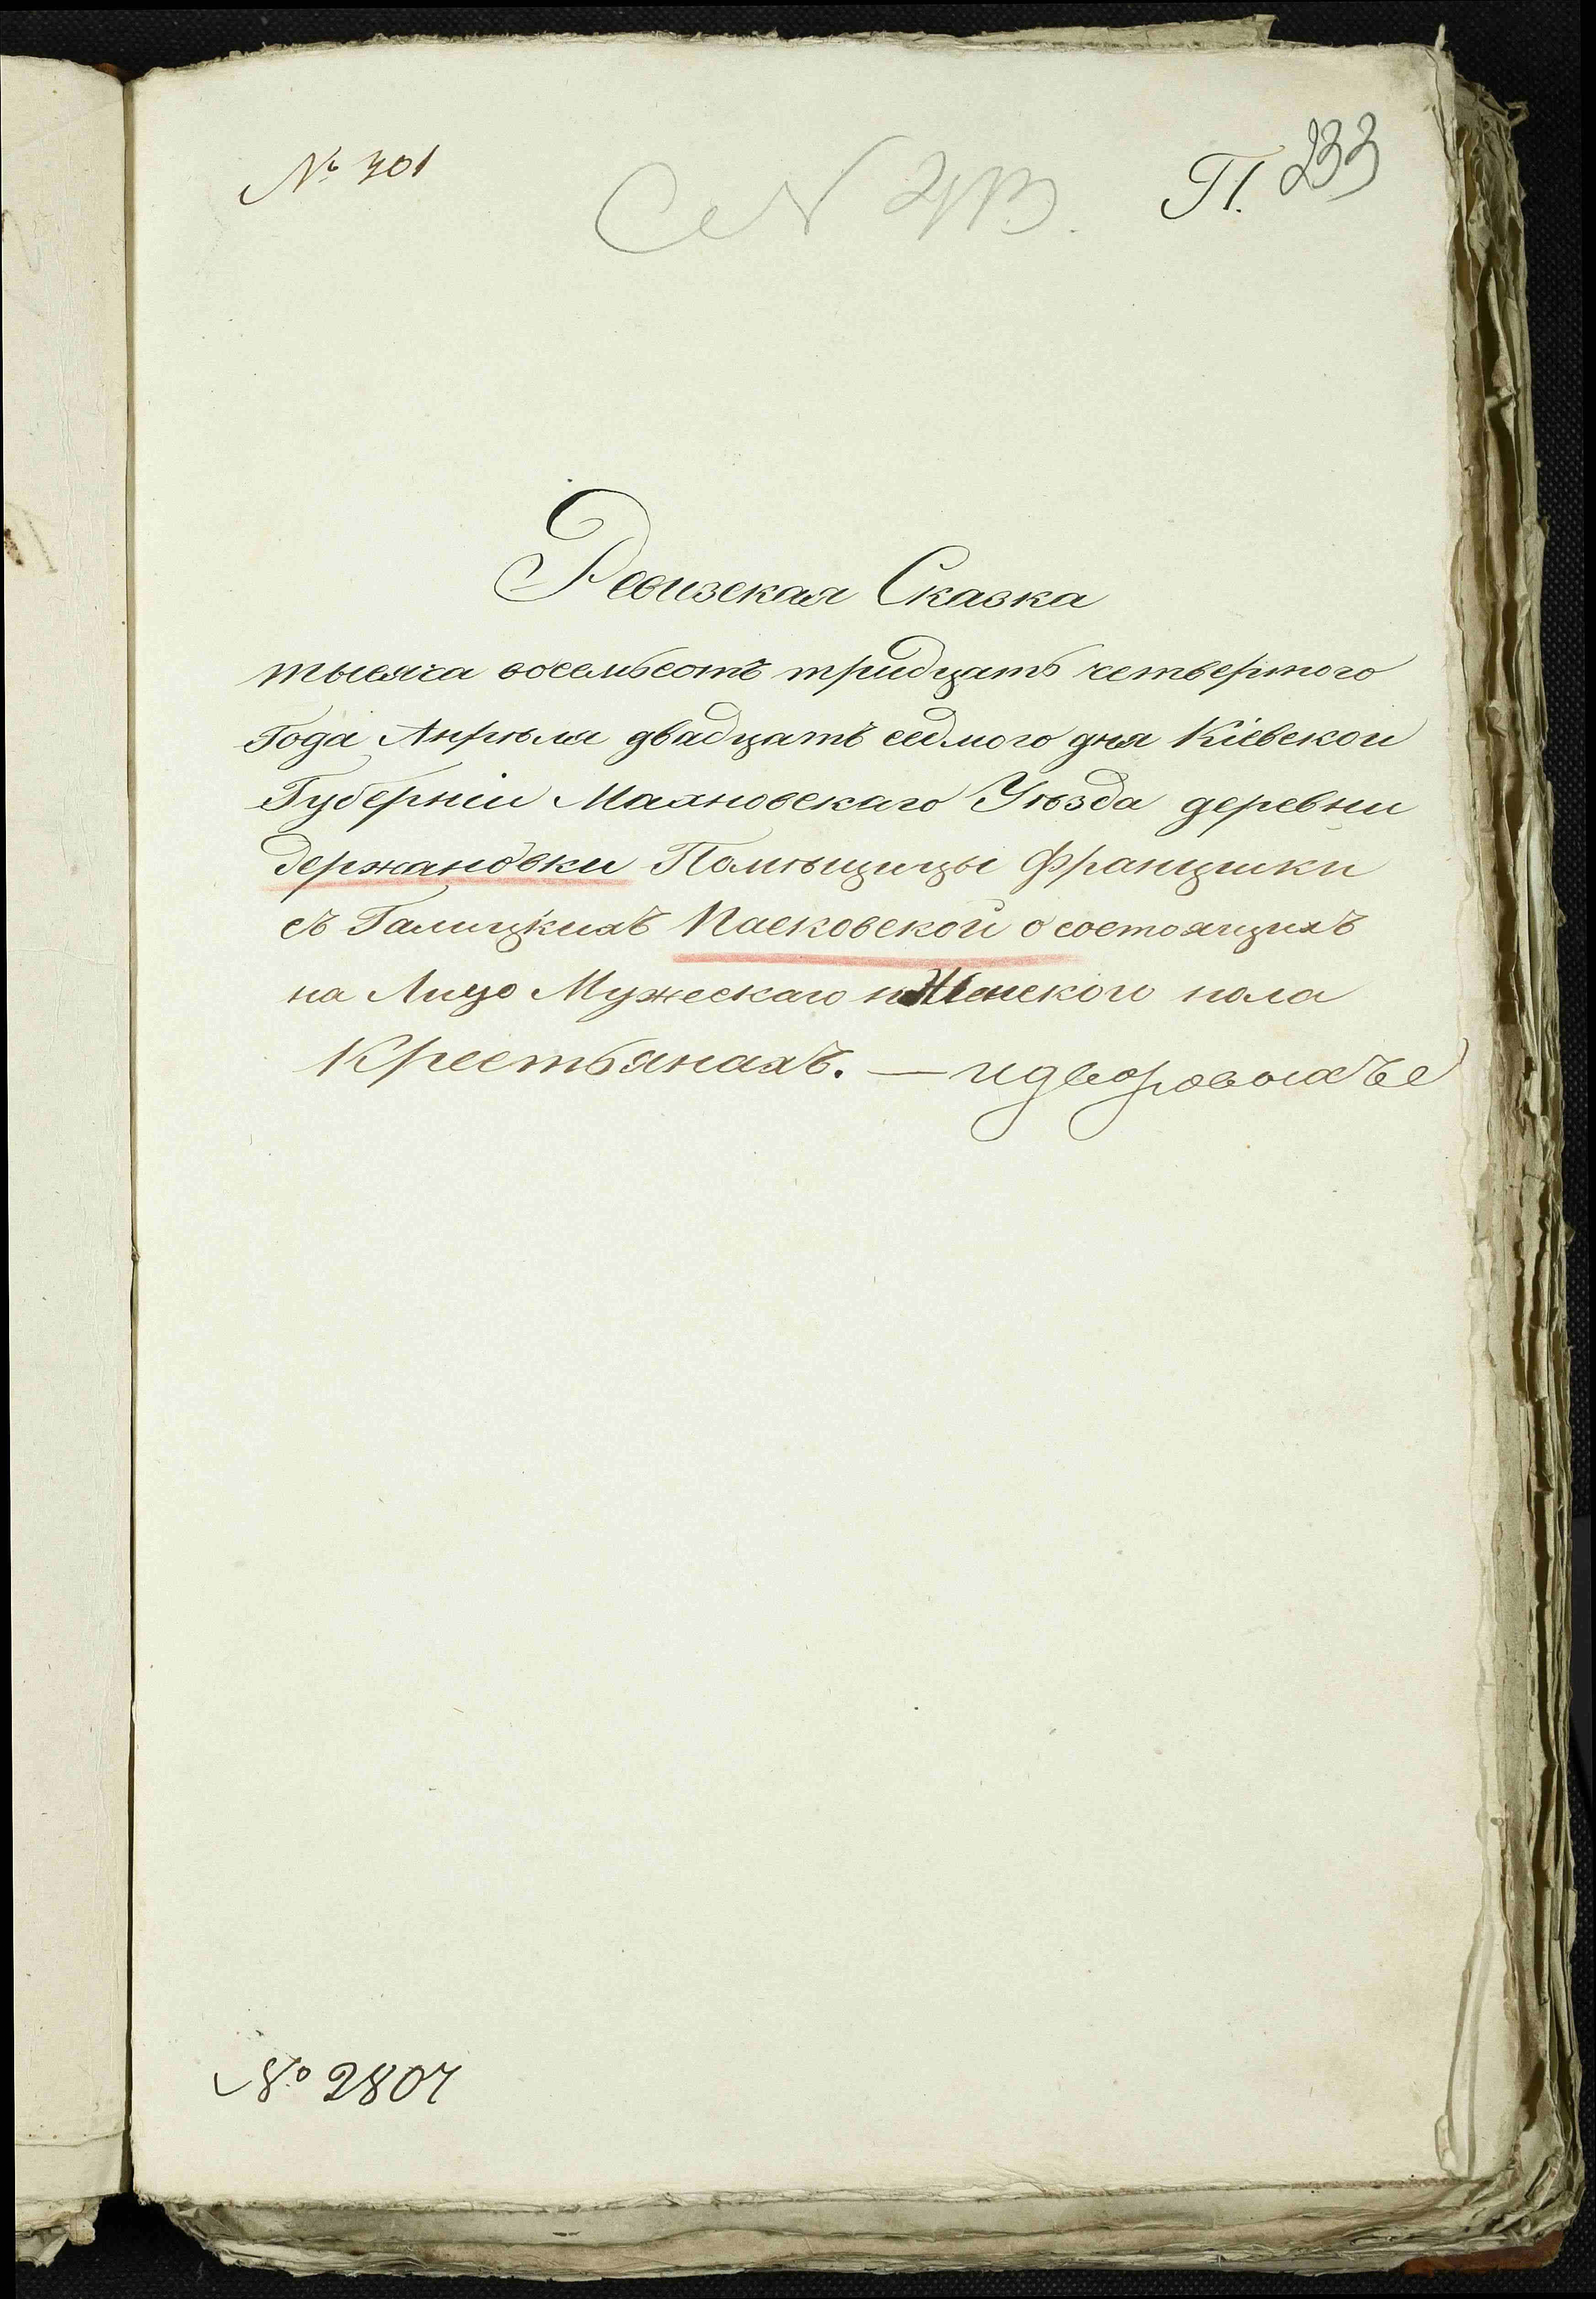 № 401
П. 233
Ревизская Сказка
тысяча восемьсотъ тридцать четвертого
Года Апрѣля двадцать седмого дня Кіевской
Губерніи Махновскаго Уѣзда деревни
держановки Помѣщицы Францишки
съ Галицкихъ Пасковской о состоящихъ
на Лицо Мужескаго и Женского пола
Крестьянахъ. — и дворовыхъ
№ 2807